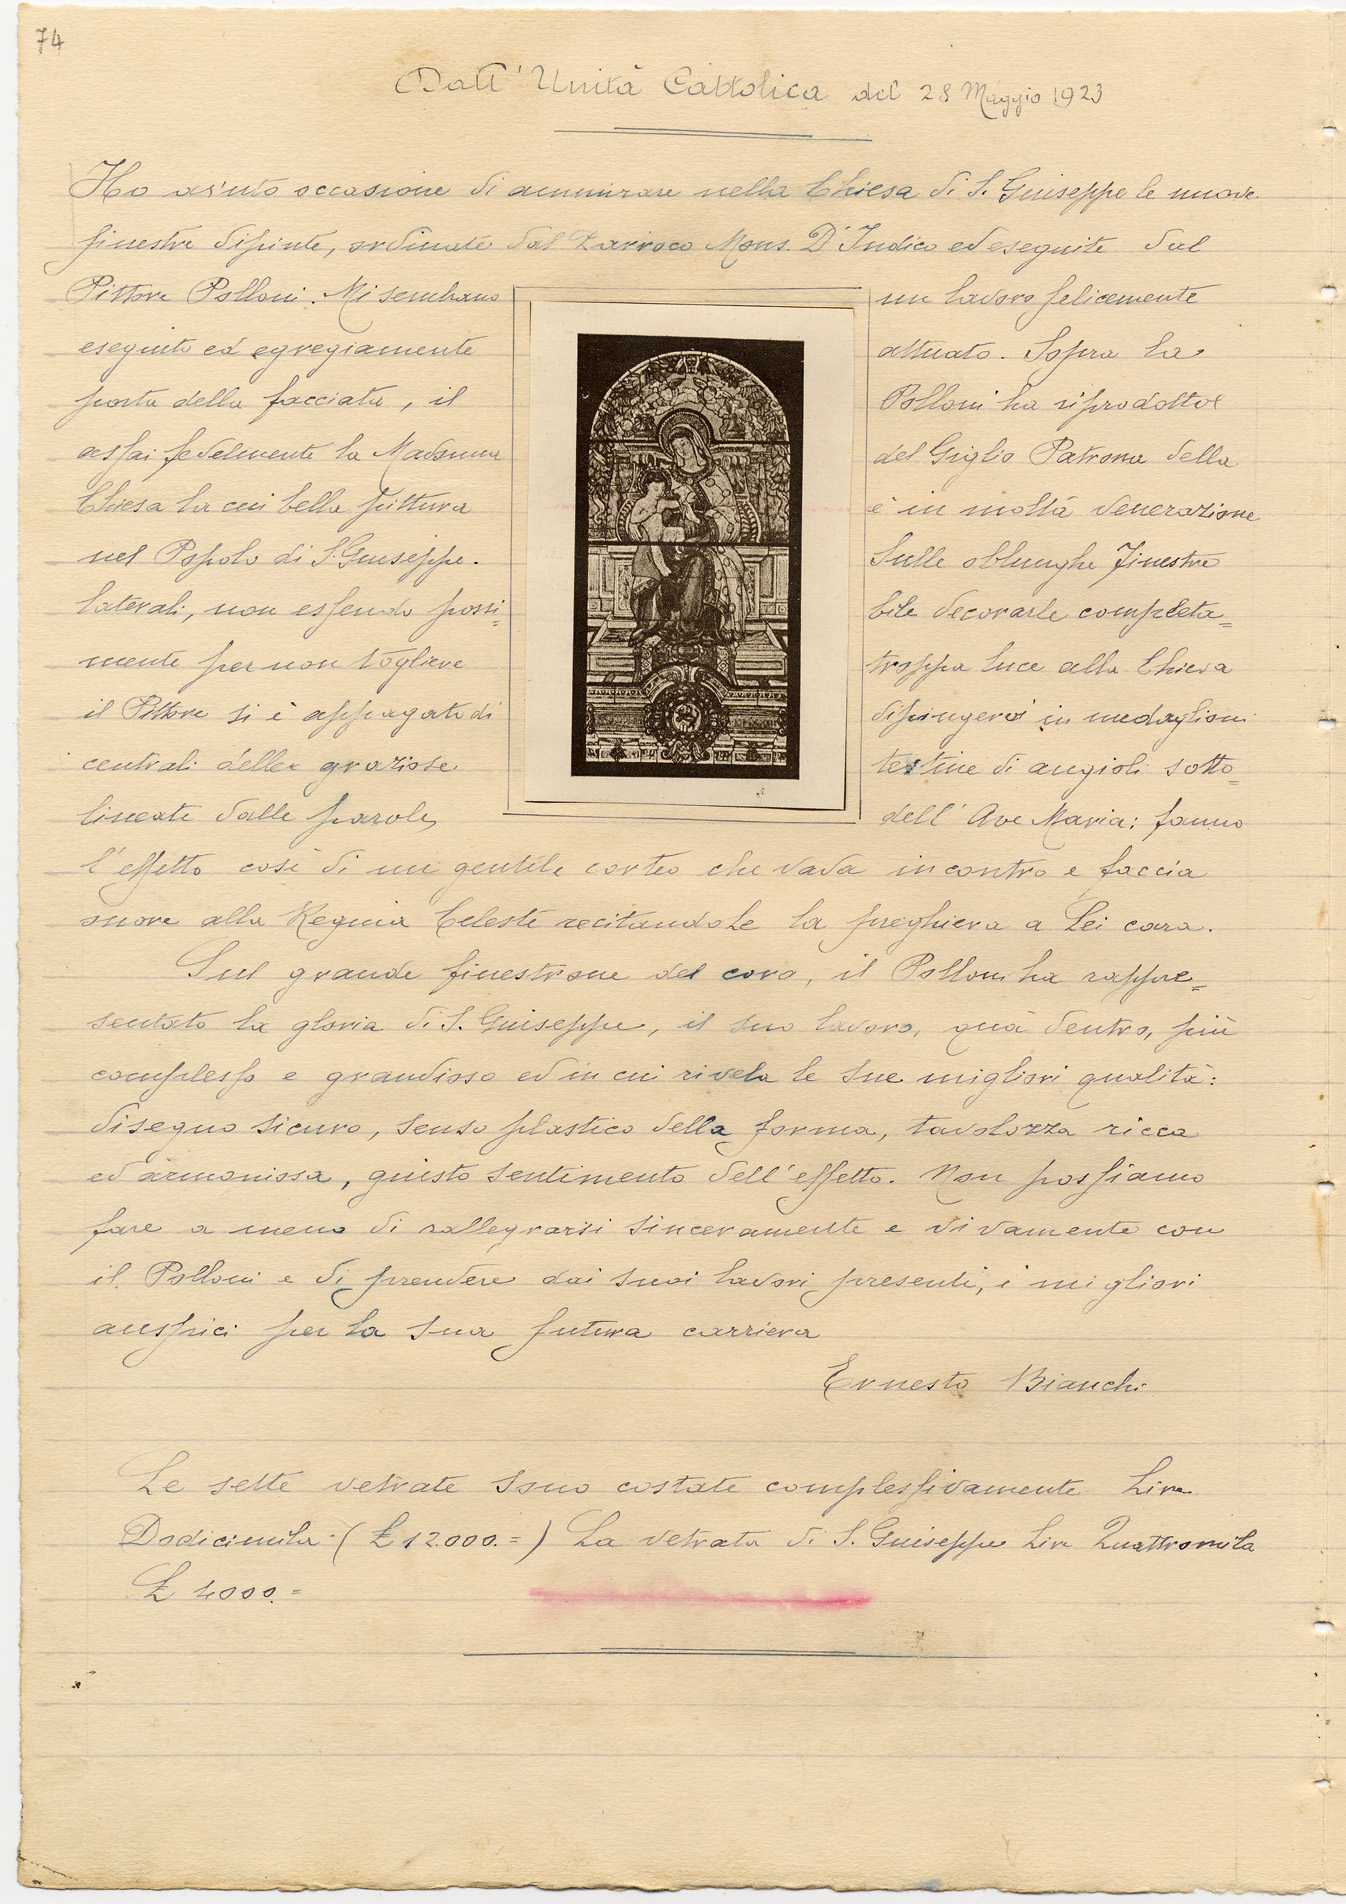 74
Dall' Unità Cattolica del 28 Maggio 1923
Ho avuto occasione di ammirare nella Chiesa di S. Giuseppe le nuove
finestre dipinte, ordinate dal Parroco Mons. D'Indico ed eseguite dal
Pittore Polloni. Mi sembrano un lavoro felicemente
eseguito ed egregiamente attuato. Sopra la
porta della facciata, il Polloni ha riprodotto
assai fedelmente la Madonna del Giglio Patrona della
Chiesa la cui bella pittura è in molta venerazione
nel Popolo di S. Giuseppe. Sulle oblunghe Finestre
laterali, non essendo possi= bile decorarle completa=
mente per non togliere troppa luce alla Chiesa
il Pittore si è appagato di dipingervi in medaglioni
centrali delle graziose testine di angioli sotto=
lineate dalle parole, dell' Ave Maria: fanno
l'effetto così di un gentile corteo che vada incontro e faccia
onore alla Regina Celeste recitandole la preghiera a Lei cara.
Sul grande finestrone del coro, il Polloni ha rappre=
sentato la gloria di S. Giuseppe, il suo lavoro, quà dentro, più
complesso e grandioso ed in cui rivela le sue migliori qualità:
disegno sicuro, senso plastico della forma, tavolozza ricca
ed armoniosa, giusto sentimento dell'effetto. Non possiamo
fare a meno di rallegrarsi sinceramente e vivamente con
il Polloni e di prendere dai suoi lavori presenti, i migliori
auspici per la sua futura carriera
Ernesto Bianchi
Le sette vetrate sono costate complessivamente Lire
Dodicimila (£ 12.000.=) La vetrata di S. Giuseppe Lire Quattromila
£ 4000.=